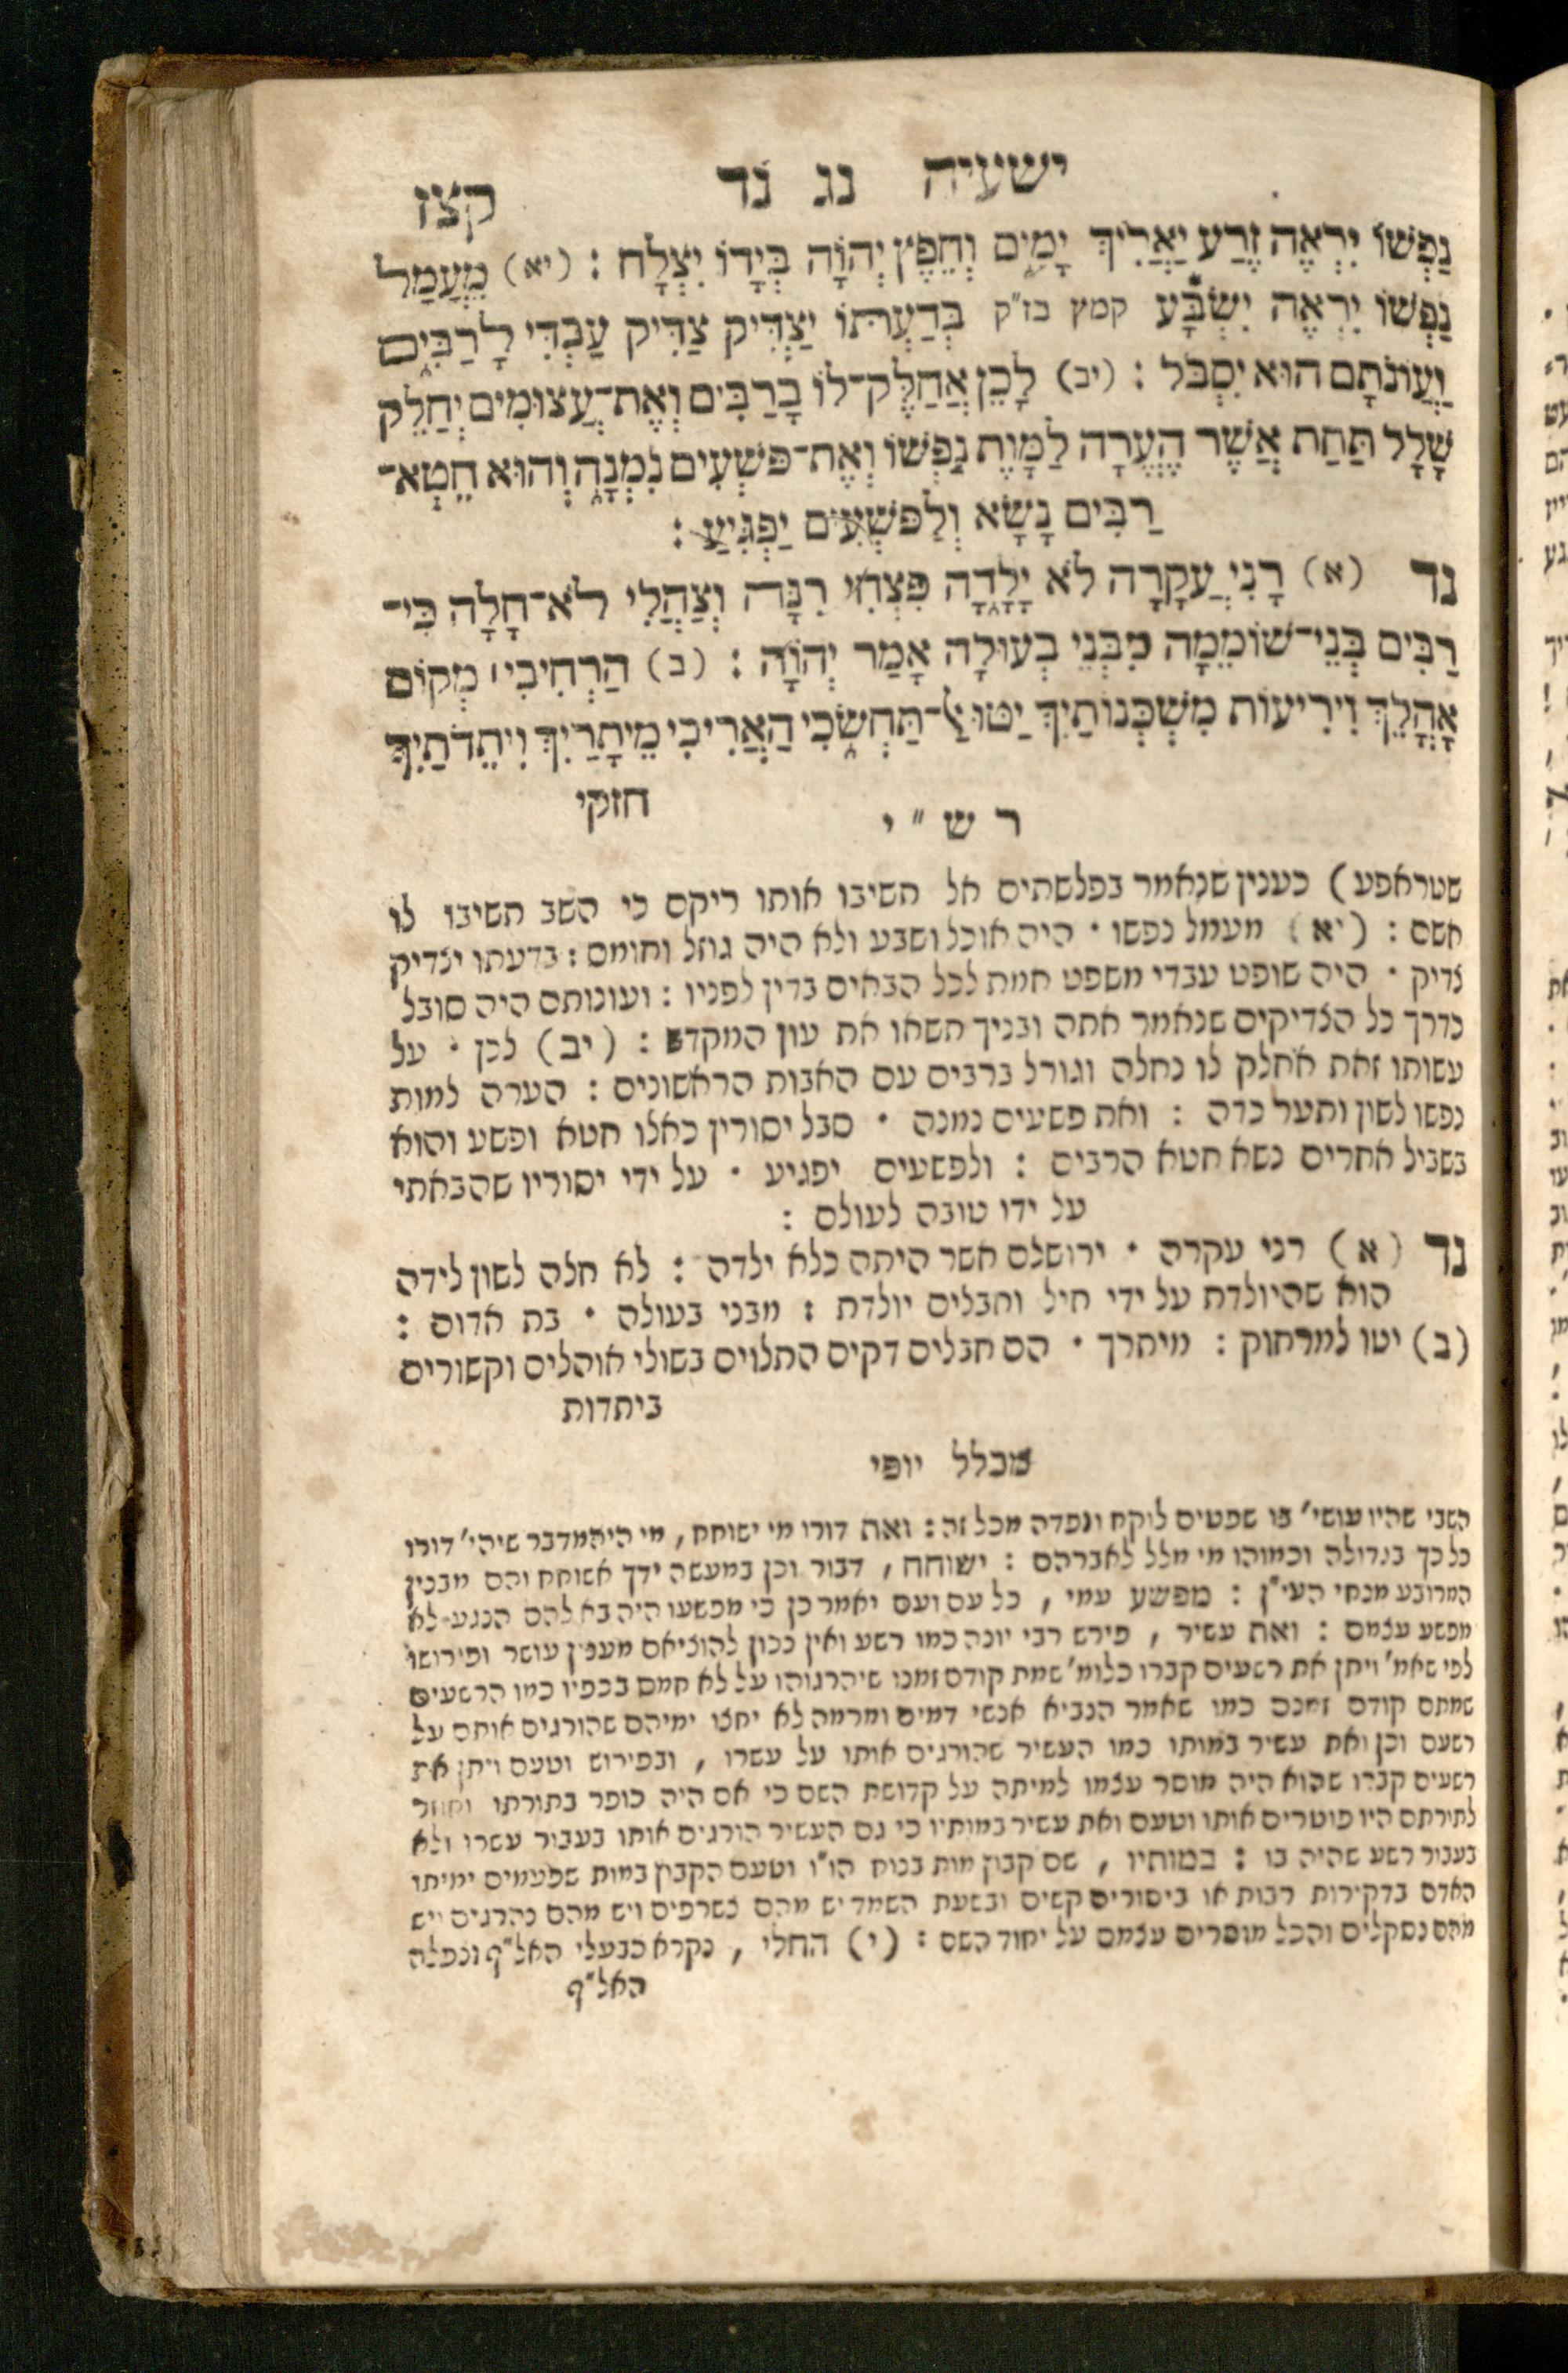 ישעיה נג נד קצז
נַפְשׁוֹ יִרְאֶה זֶרַע יַאֲרִיךְ יָמִים וְחֵפֶץ יְהוָֹה בְּיָדוֹ יִצְלָח : (יא) מֵעֲמַל
נַפְשׁוֹ יִרְאֶה יִשְׂבָּע קמץ בז״ק בְּדַעְתּוֹ יַצְדִּיק צַדִּיק עַבְדִּי לָרַבִּים
וַעֲוֹנֹתָם הוּא יִסְבֹּל : (יב) לָכֵן אֲחַלֶּק־לוֹ בָרַבִּים וְאֶת־עֲצוּמִים יְחַלֵּק
שָׁלָל תַּחַת אֲשֶׁר הֶעֱרָה לַמָּוֶת נַפְשׁוֹ וְאֶת־פּשְׁעִים נִמְנָה וְהוּא חֵטְא־
רַבִּים נָשָׂא וְלַפּשְׁעִים יַפְגִּיעַ :
נד (א) רָנִּי עֲקָרָה לֹא יָלָדָה פִּצְחִי רִנָּה וְצַהֲלִי לֹא־חָלָה כִּי־
רַבִּים בְּנֵי־שׁוֹמֵמָה מִבְּנֵי בְעוּלָה אָמַר יְהוָֹה : (ב) הַרְחִיבִי מְקוֹם
אָהֳלֵךְ וִירִיעוֹת מִשְׁכְּנוֹתַיִךְ יַטּוּ אַל־תַּחְשֹׂכִי הַאֲרִיכִי מֵיתָרַיִךְ וִיתֵדֹתַיִךְ
חזקי
ר ש ״ י
שטראפע) כענין שנאמר בפלשתים אל תשיבו אותו ריקם כי השב תשיבו לו
אשם : (יא) מעמל נפשו · היה אוכל ושבע ולא היה גוזל וחומס : בדעתו יצדיק
צדיק · היה שופט עבדי משפט אמת לכל הבאים בדין לפניו : ועונותם היה סובל
כדרך כל הצדיקים שנאמר אתה ובניך תשאו את עון המקדש : (יב) לכן · על
עשותו זאת אחלק לו נחלה וגורל ברבים עם האבות הראשונים : הערה למות
נפשו לשון ותער כדה : ואת פשעים נמנה · סבל יסורין כאלו חטא ופשע והוא
בשביל אחרים נשא חטא הרבים : ולפשעים יפגיע · על ידי יסוריו שהבאתי
על ידו טובה לעולם :
נד (א) רני עקרה · ירושלם אשר היתה כלא ילדה : לא חלה לשון לידה
הוא שהיולדת על ידי חיל וחבלים יולדת : מבני בעולה · בת אדום :
(ב) יטו למרחוק : מיתרך · הם חבלים דקים התלוים בשולי אוהלים וקשורים
ביתדות
מכלל יופי
השבי שהיו עושי׳ בו שפטים לוקח ונפדה מכל זה : ואת דורו מי ישוחח , מי היה מדבר שיהי׳ דורו
כל כך בגדולה וכמוהו מי מלל לאברהם : ישוחח , דבור וכן במעשה ידך אשוחח והם מבנין
המרובע מנחי העי״ן : מפשע עמי , כל עם ועם יאמר כן כי מפשעו היה בא להם הנגע לא
מפשע עצמם : ואת עשיר , פירש רבי יונה כמו רשע ואין נכון להוציאם מענין עושר ופירושו
לפי שאמ׳ ויתן את רשעים קברו כלומ׳ שמת קודם זמנו שיהרגוהו על לא חמס בכפיו כמו הרשעים
שמתם קודם זמנם כמו שאמר הנביא אנשי דמים ומרמה לא יחצו ימיהם שהורגים אותם על
רשעם וכן ואת עשיר במותו כמו העשיר שהורגים אותו על עשרו , ובפירוש וטעם ויתן את
רשעים קברו שהוא היה מוסר עצמו למיתה על קדושת השם כי אם היה כופר בתורתו וחוזר
לתורתם היו פוטרים אותו וטעם ואת עשיר במותיו כי גם העשיר הורגים אותו בעבור עשרו ולא
בעבור רשע שהיה בו : במותיו , שם קבוץ מות בנוח הו״ו וטעם הקבוץ במות שפעמים ימיתו
האדם בדקירות רבות או ביסורים קשים ובשעת השמד יש מהם נשרפים ויש מהם נהרגים ויש
מהם נסקלים והכל מוסרים עצמם על יחוד השם : (י) החלי , נקרא כבעלי האל״ף ונפלה
האל״ף